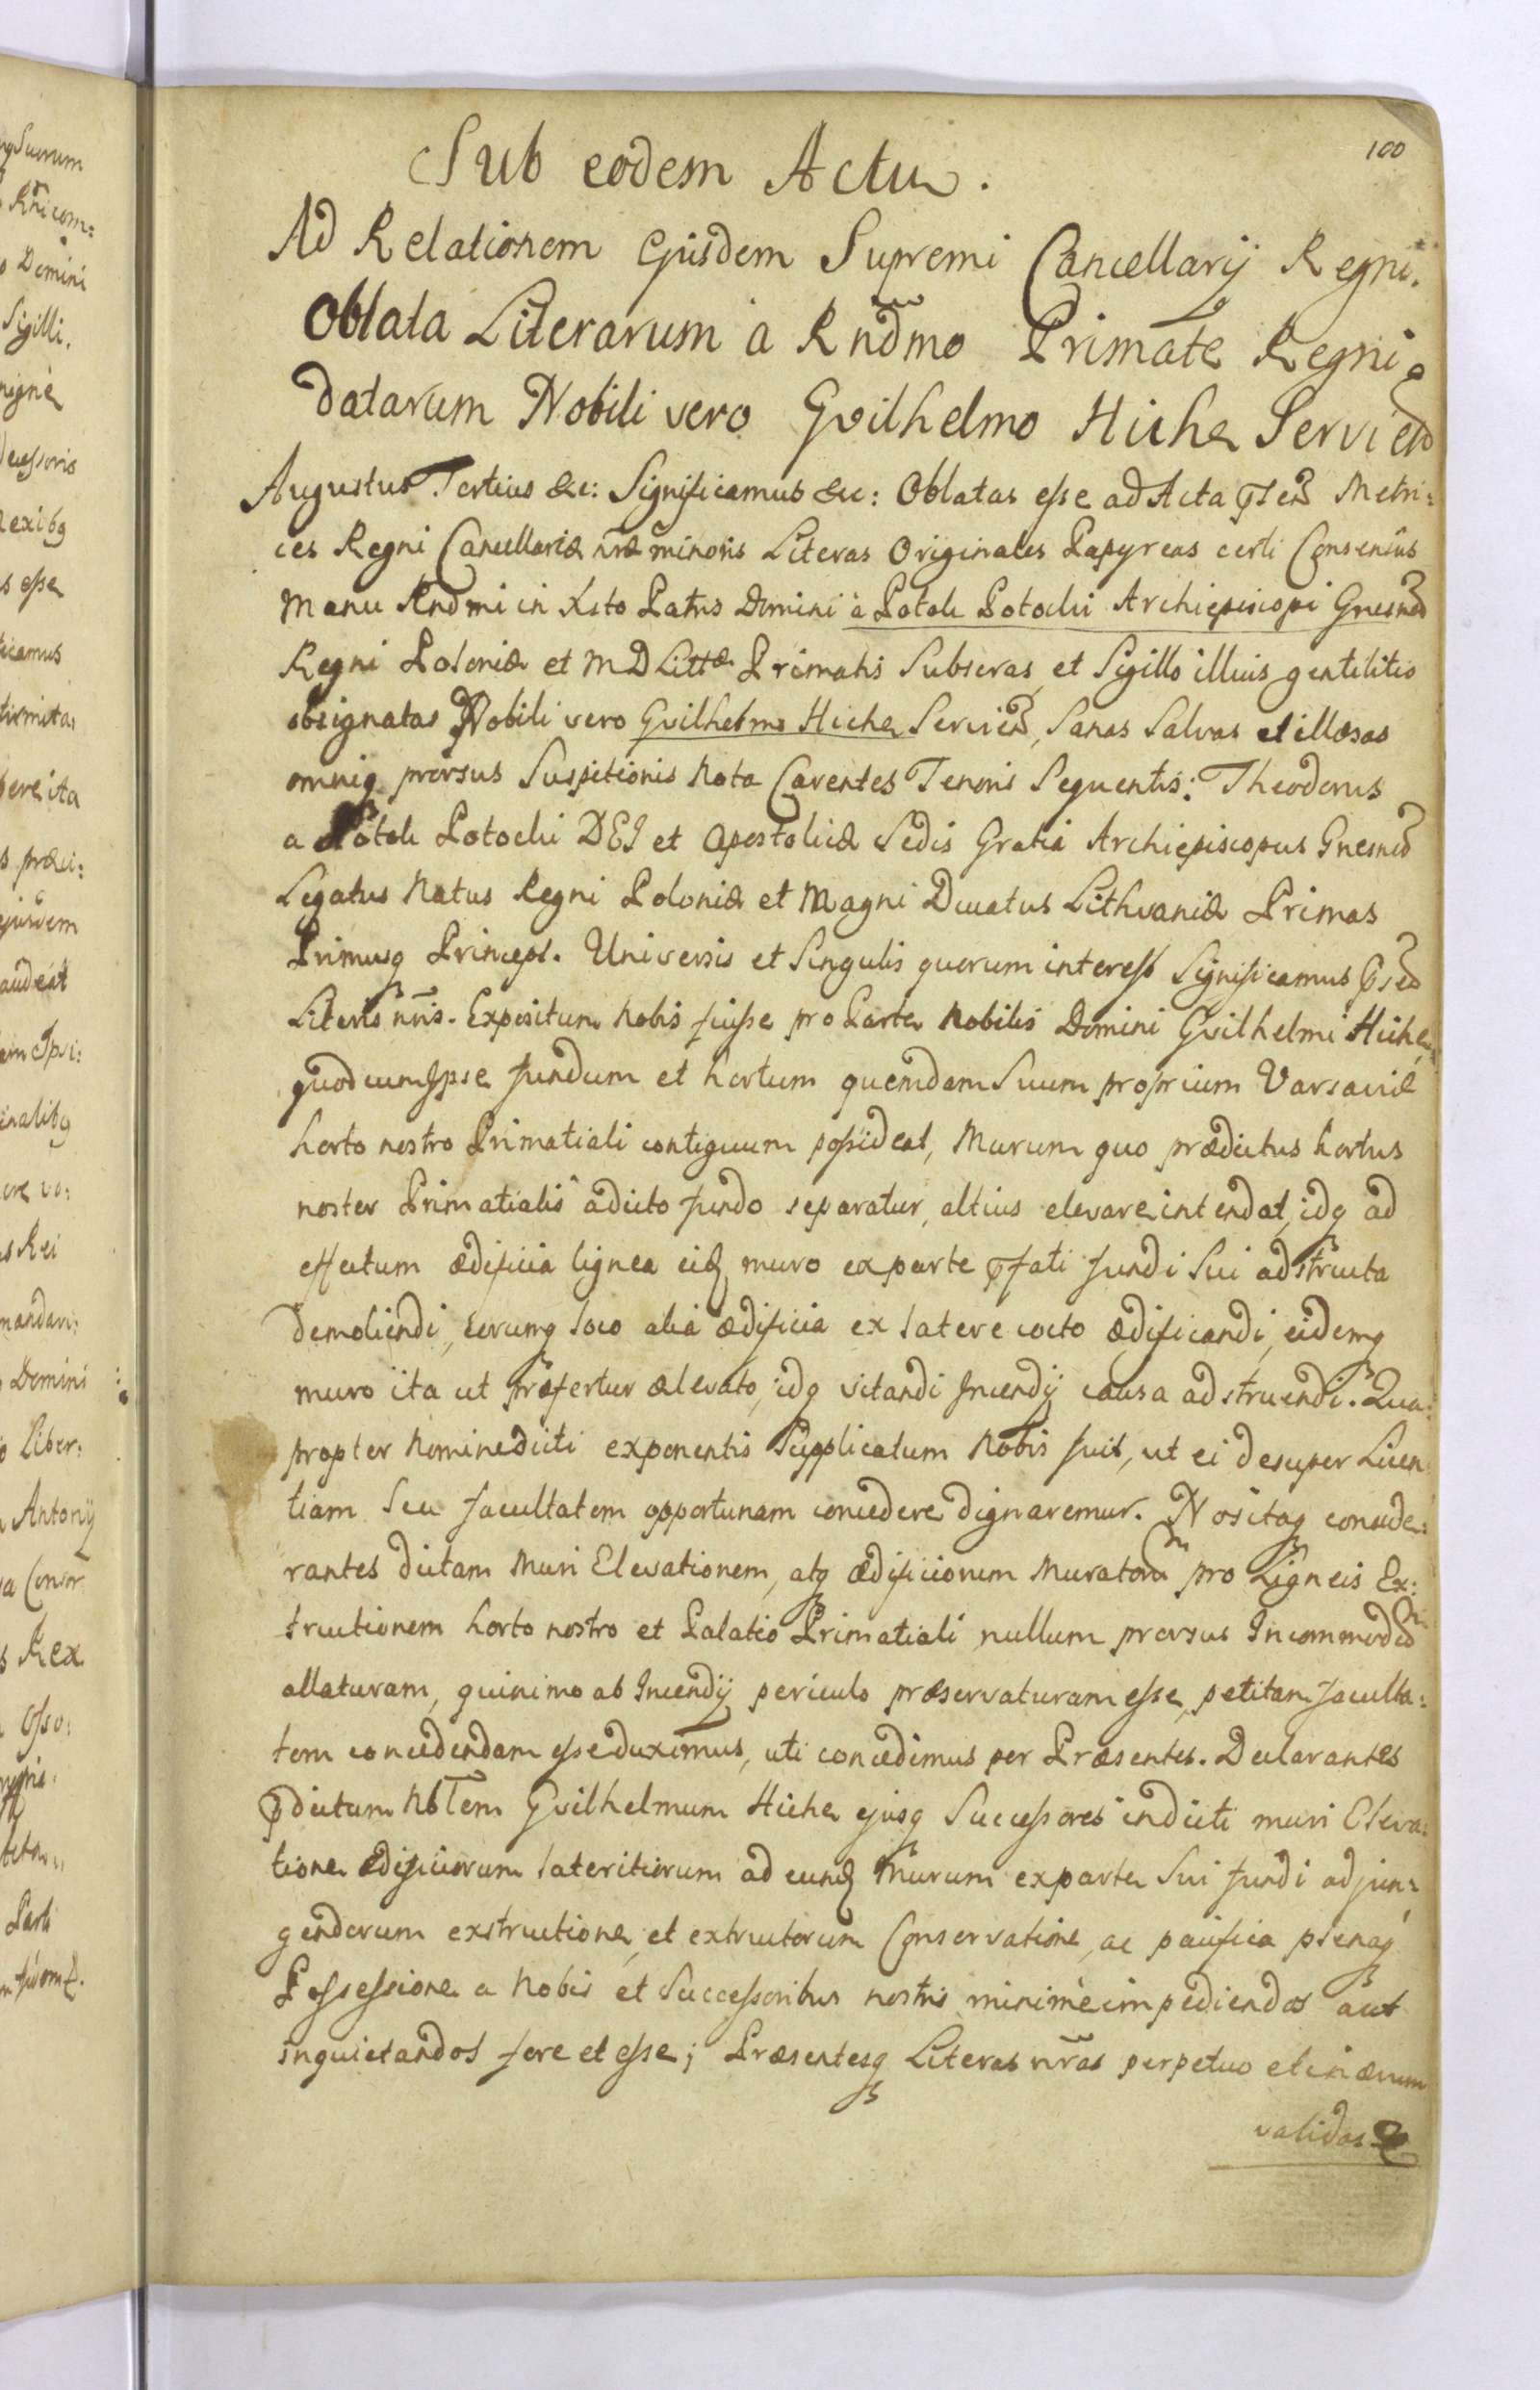 100
Sub eodem Actu.
Ad Relationem Ejusdem Supremi Cancellarij Regni.
Oblata Literarum a Rndmo Primate Regni
datarum Nobili vero Gvilhelmo Hiche Servien
Augustus Tertius &c: Significamus &c: Oblatas esse ad Acta Pñt Metri:
ces Regni Cancellariæ nræ minoris Literas Originales Papyreas certi Consensus
Manu Rndmi in Xsto Patris Domini a Potok Potocki Archiepiscopi Gnesnen
Regni Poloniæ et M D Littæ Primatis Subscras, et Sigillo illius gentilitio
obsignatas Nobili vero Gvilhelmo Hiche Servien, Sanas Salvas et illæsas
omniq prorsus Suspitionis Nota Carentes Tenoris Sequentis: Theodorus
a Potok Potocki DEI et Apostolicæ Sedis Gratia Archiepiscopus Gnesnen
Legatus Natus Regni Poloniæ et Magni Ducatus Lithvaniæ Primas
Primusq Princeps. Universis et Singulis quorum interest Significamus
Literis nris. Expositum Nobis fuisse pro Parte Nobilis Domini Gvilhelmi Hiche,
quod cum Ipse fundum et hortum quemdam Suum proprium Varsaviæ
horto nostro Primatiali contiguum possideat, Murum quo prædictus hortus
noster Primatialis a dicto fundo separatur, altius elevare intendat, idq ad
effectum ædificia lignea eid muro ex parte pfati fundi Sui adstructa
demoliendi, eorumq loco alia ædificia ex latere cocto ædificandi, eidemq
muro ita ut præfertur ælevato, idq vitandi Incendij causa adstruendi. Qua:
propter Nomine dicti exponentis Supplicatum Nobis fuit, ut ei desuper Licen
tiam Seu facultatem opportunam concedere dignaremur. Nos itaq conside:
rantes dictam Muri Elevationem, atq ædificiorum Murator pro Ligneis Ex:
tructionem horto nostro et Palatio Primatiali nullum prorsus Incommod
allaturam, quinimo ab Incendij periculo præservaturam esse, petitam faculta:
tem concedendam esse duximus, uti concedimus per Præsentes. Declarantes
pdictum Nblem Gvilhelmum Hiche ejusq Successores in dicti muri Eleva:
tione ædificiorum lateritiorum ad eund Murum ex parte Sui fundi adjun:
gendorum exstructione, et extructorum Conservatione, ac pacifica plenaq
Possessione a Nobis et Successoribus nostris minime impediendos aut
inquietandos fore et esse; Præsentesq Literas nras perpetuo et in ævum
validas